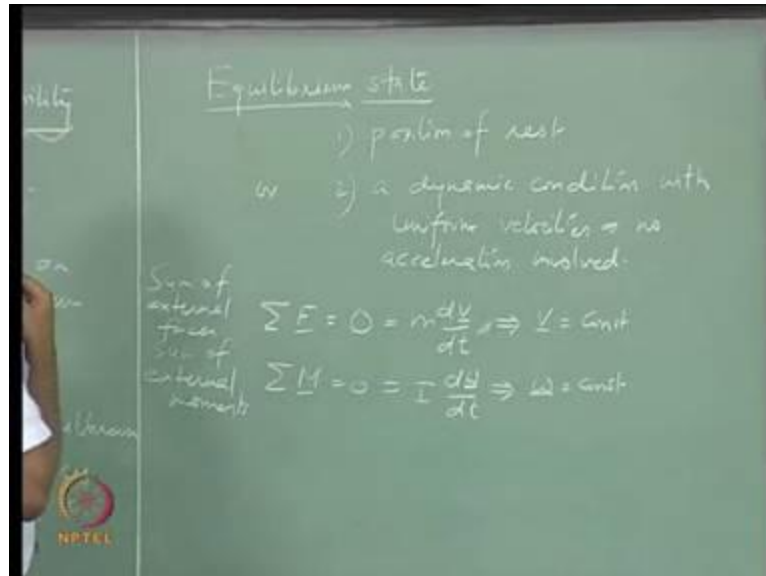 ility
Equilibrium state
1) position of rest
or 2) a dynamic condition with
uniform velocities = no
acceleration involved.
on
Sum of
external
forces
Σ F = 0 = m dV/dt, ⇒ V = Const
Sum of
external
moments
Σ M = 0 = I dω/dt ⇒ ω = Const
NPTEL